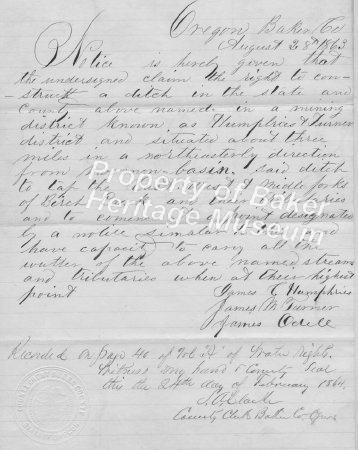 Oregon Baker Co.
August 28th 1863
Notice is herby given that
the undersigned claim the right to con-
struct a ditch in the state and
County above named. in a mining
district known as Humphries & Turner
district and situated about three
miles in a northeasterly direction
from basin. said ditch
to tap the Middle forks
of Birch
and to comence at point designated
by a notice simalar to this and
have capacity to carry all the
watter of the above named streams
and tributaries when at their highest
point
James C Humphries
James M Turner
James Odell
Recorded on Page 40 of Vol "A" of Water Rights.
Witness my hand & County Seal
this the 24th day of February 1864.
County Clerk Baker Co
Property of Baker
Heritage Museum